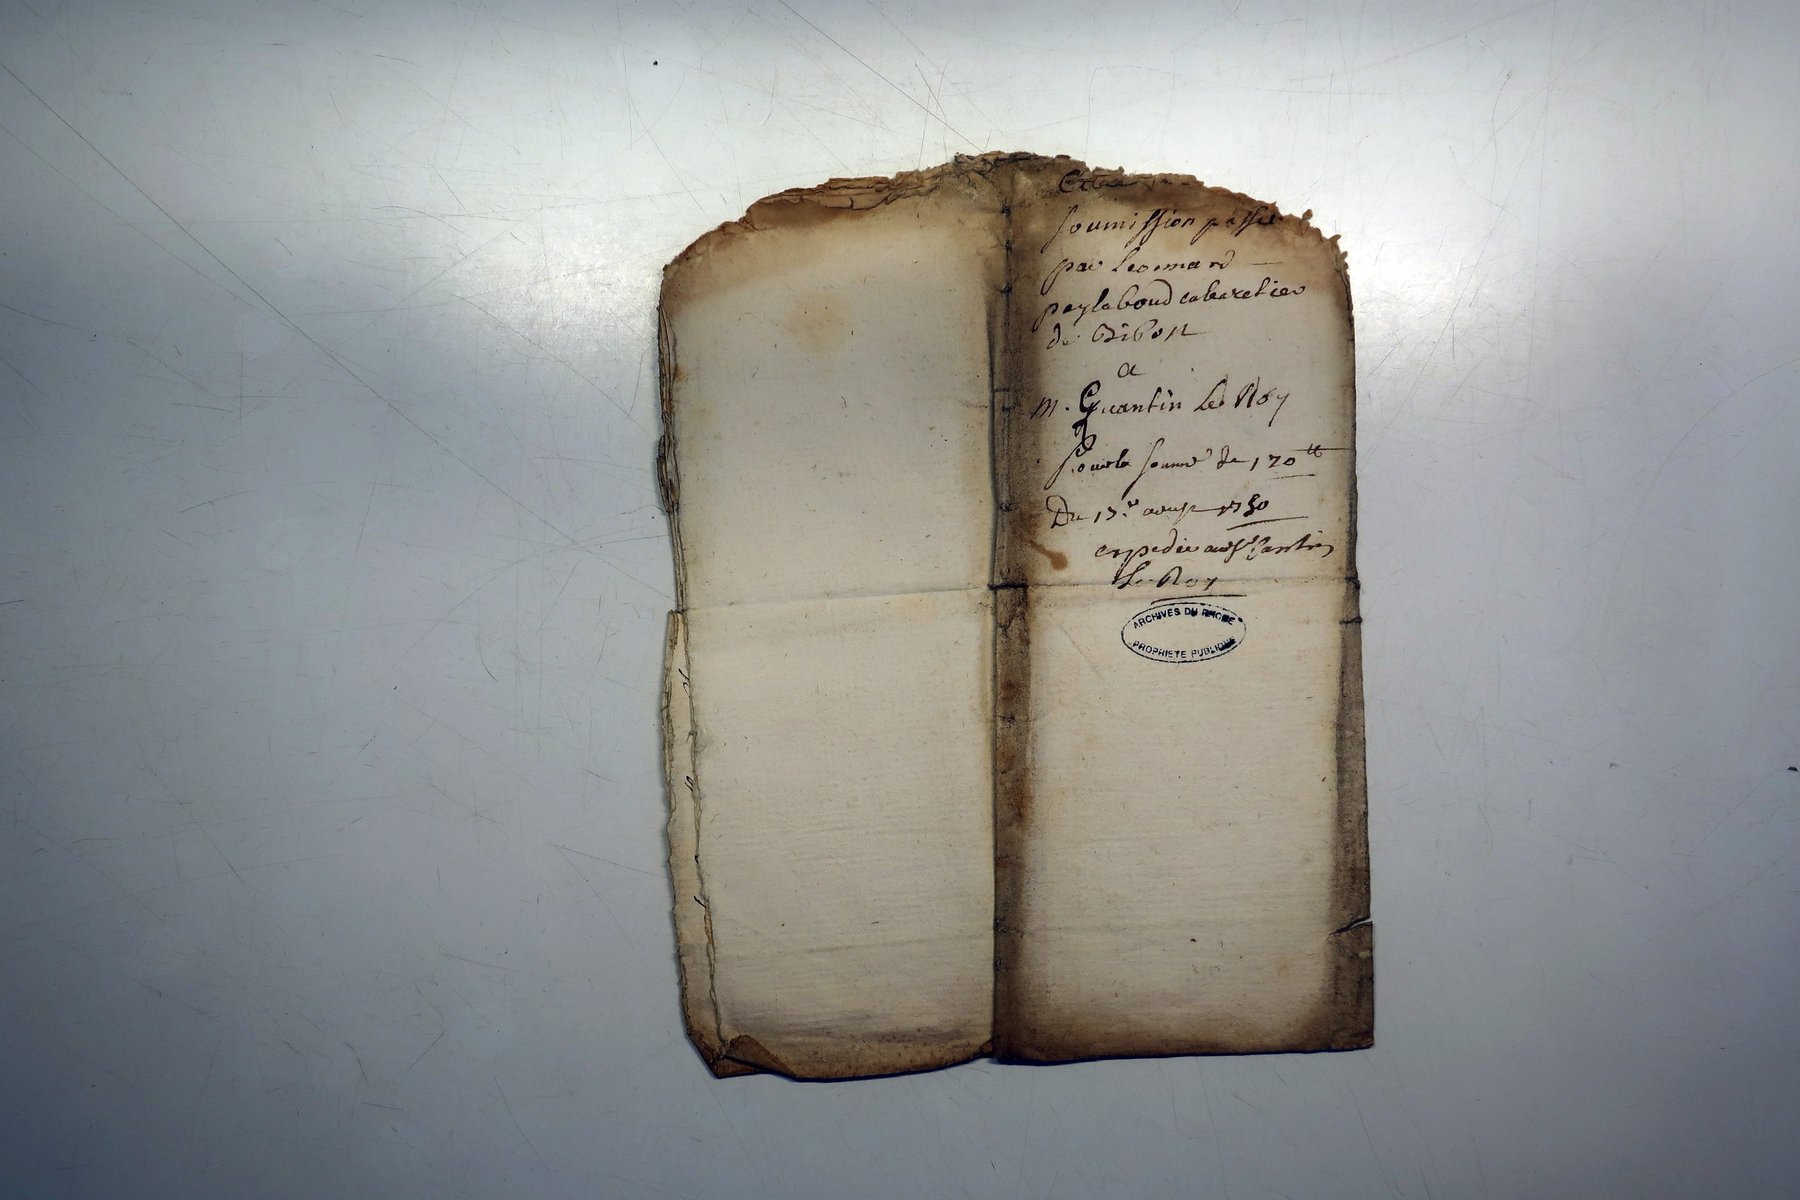 soumission passée
par Leonnard
peylaboud cabaretier
de
a
m. Quantin Le Roy
pour la somme de 170 ₶
Du 13.e aoust 1750
expedié au Sr. Cantin
Le Roy
ARCHIVES DU RHONE
PROPRIETE PUBLIQUE